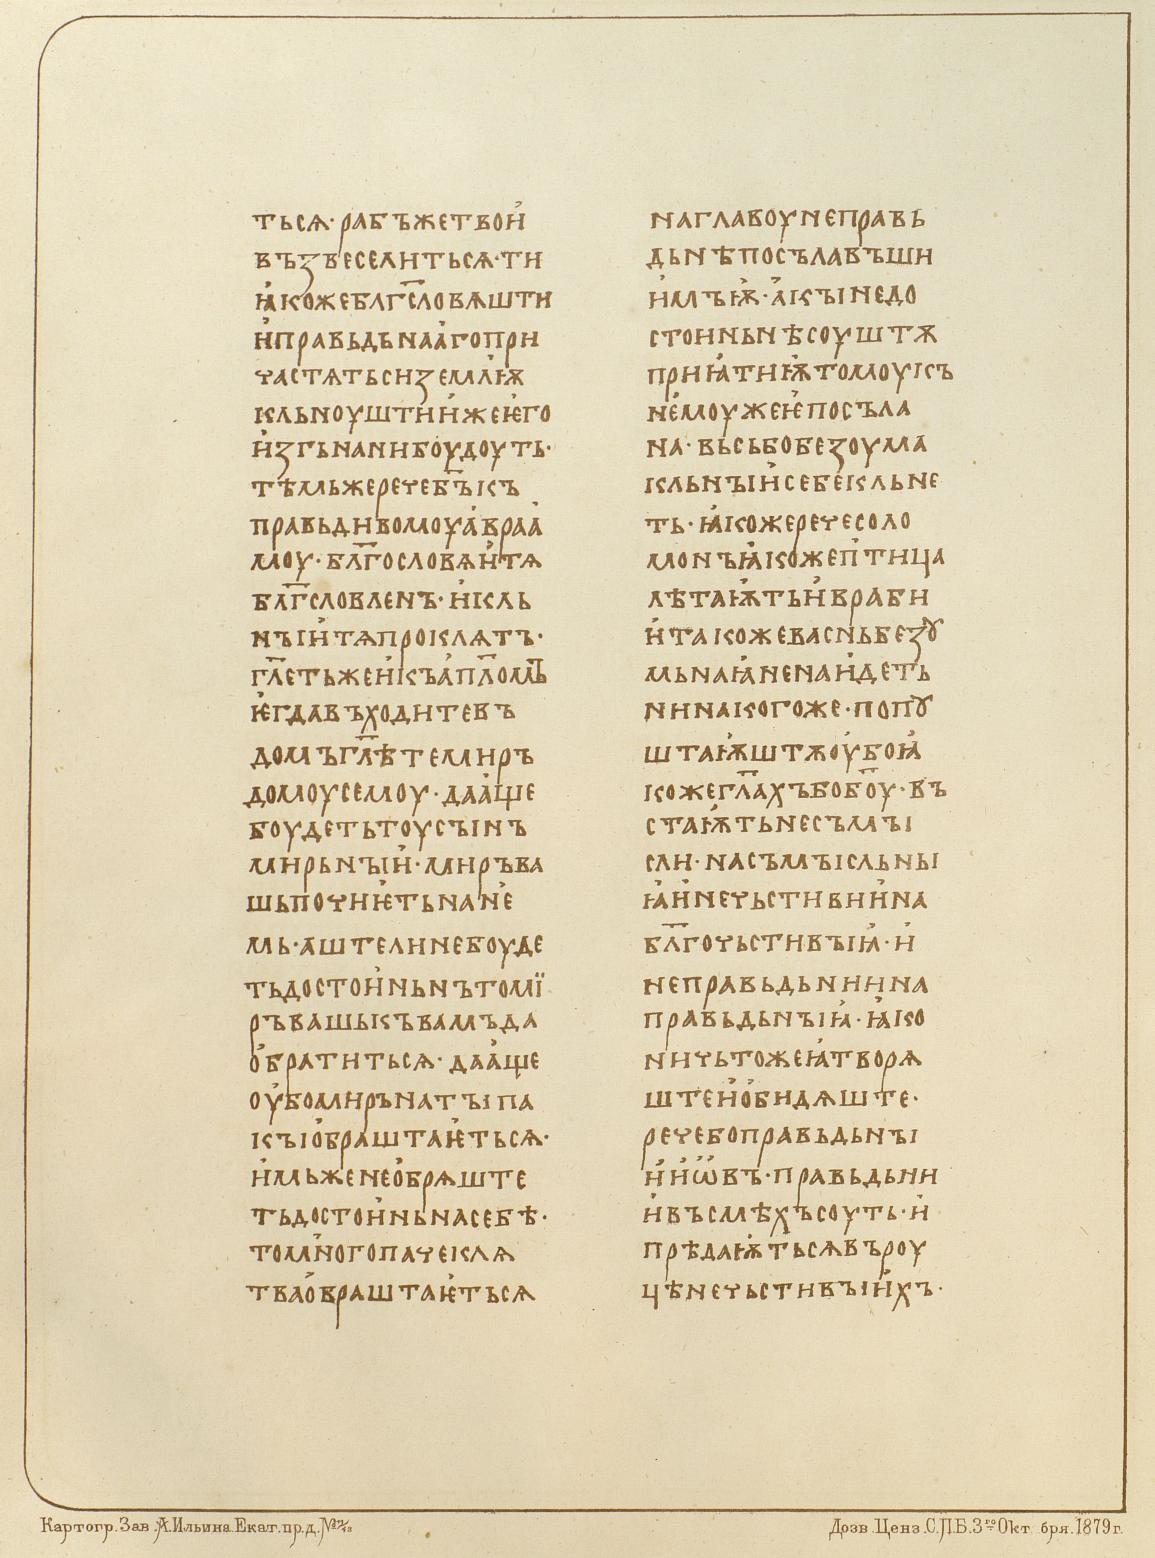 тьсѧ· рабъжетвои҆
въꙁвеселитьсѧ·ти
ꙗ҆кожеблг҃словѧшти
и҆правьдьнаа҆гопри
частѧтьсиꙁемлѭ҆
кльноуштии҆жеѥ҆го
и҆ꙁгънанибоудоуть·
тѣмьжеречеб҃ъкъ
правьдивомоуа҆враа҆
моу· бл҃гословѧи҆тѧ
бл҃гсловленъ· и҆кль
нъıи҆тѧпроклѧтъ·
гл҃етьжеи҆къа҆пл҃ом҃ъ
ѥ҆гдавъходитевъ
домъгл҃ѣтемиръ
домоусемоу· даа҆ще
боудетьтоусъıнъ
мирьнъıи҆· миръва
шьпочиѥ҆тьнан҆е
мь· аштелинебоуде
тьдостои҆ньнътомї
ръвашькъвамъда
о҆братитьсѧ· даа҆ще
оу҆бомиръматъıпа
къıо҆браштаѥ҆тьсѧ·
и҆мьженео҆брѧште
тьдостои҆ньнасебѣ·
томн҆огопачеклѧ
твао҆браштаѥ҆тьсѧ
наглавоунеправь
дьнѣпосълавъши
и҆мъѭ҆· а҆къıнедо
стоиньнѣсоуштѫ
приꙗ҆тиѭ҆томоукъ
не҆моужеѥ҆посъла
на· вьсьбобеꙁоума
кльнъıи҆себекльне
ть· ꙗ҆кожеречесоло
монъꙗ҆кожепт҆ица
лѣтаѭ҆тьи҆враби
и҆такожевасньбеꙁꙋ
мьнаꙗ҆ненаи҆деть
нинакогоже· попꙋ
штаѭ҆штѫоу҆боꙗ҆
кожегл҃ахъбоб҃оу· въ
стаѭ҆тьнесъмъı
сли· насъмъıсльнъı
ꙗ҆и҆нечьстивии҆на
бл҃гочьстивъıꙗ҆· и҆
неправьдьниина
правьдьнъıꙗ҆· ꙗ҆ко
ничьтожеꙗ҆творѧ
штеи҆о҆бидѧште·
речебоправьдьнъı
и҆и҆ѡ҆въ· правьдьни
и҆въсмѣхъсоуть· и҆
прѣдаѭ҆тьсѧвъроу
цѣнечьстивъıи҆хъ·
Картогр. Зав. А. Ильина. Екат. пр. д.
Дозв. Ценз. С.П.Б. 3го Октября. 1879 г.